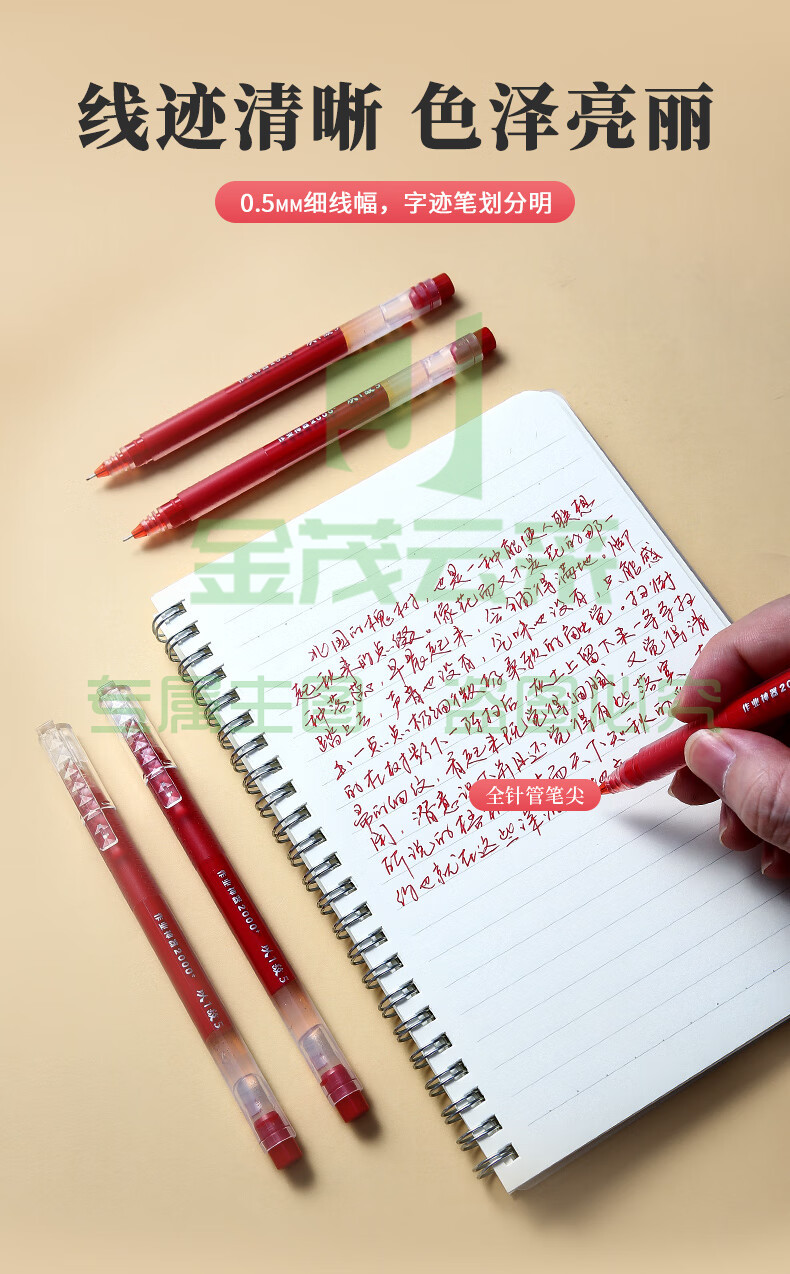 线迹清晰 色泽亮丽
0.5MM细线幅，字迹笔划分明
作业神器2000+
作业神器2000+
金茂云采
北国的槐树，也是一种能使人联想
起秋来的点缀。像花而又不是花的那一
种落蕊，早晨起来，会铺得满地。脚
踏上去，声音也没有，气味也没有，只能感
出一点点极细微极柔软的触觉。扫街
的在树影下一阵扫后，灰土上留下来一条条扫
帚的细纹，看起来既觉得细腻，又觉得清
闲，潜意识下并且还觉得有些落寞
所说的梧桐
约也就在这些深
专属主图 盗图必究
作业神器20
全针管笔尖
作业神器2000+
作业神器2000+